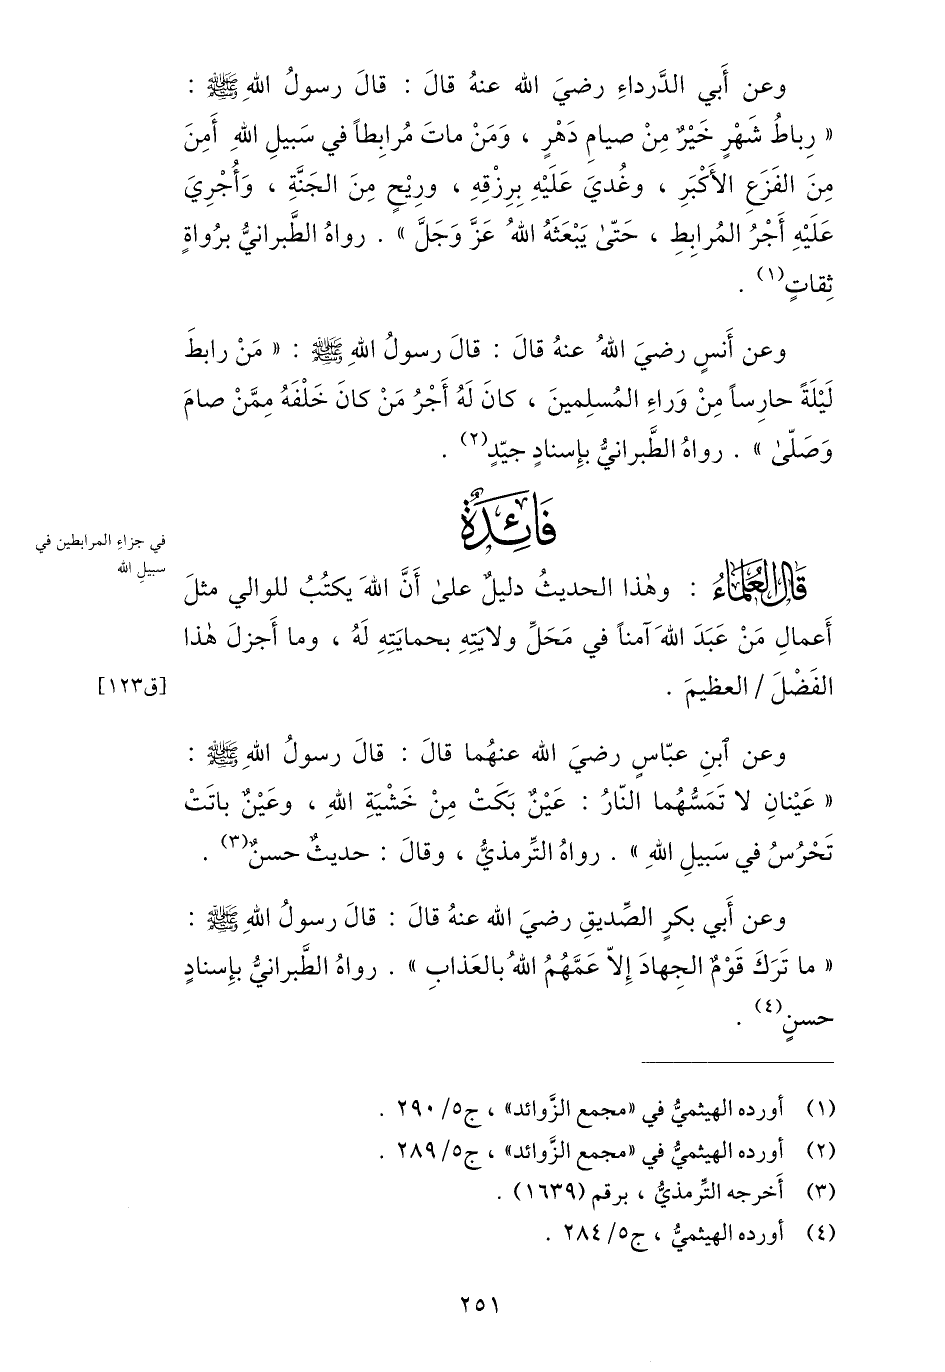 وعن أَبي الدَّرداءِ رضيَ الله عنهُ قالَ : قالَ رسولُ اللهِ ﷺ :
« رِباطُ شَهْرٍ خَيْرٌ مِنْ صيامِ دَهْرٍ ، وَمَنْ ماتَ مُرابِطاً في سَبيلِ اللهِ أَمِنَ
مِنَ الفَزَعِ الأَكْبَرِ ، وغُديَ عَلَيْهِ بِرِزْقِهِ ، وريْحٍ مِنَ الجَنَّةِ ، وَأُجْرِيَ
عَلَيْهِ أَجْرُ المُرابِطِ ، حَتّىٰ يَبْعَثَهُ اللهُ عَزَّ وَجَلَّ » . رواهُ الطَّبرانيُّ برُواةٍ
ثِقاتٍ(١) .
وعن أَنسٍ رضيَ اللهُ عنهُ قالَ : قالَ رسولُ اللهِ ﷺ : « مَنْ رابطَ
لَيْلَةً حارِساً مِنْ وَراءِ المُسلِمينَ ، كانَ لَهُ أَجْرُ مَنْ كانَ خَلْفَهُ مِمَّنْ صامَ
وَصَلّىٰ » . رواهُ الطَّبرانيُّ بإِسنادٍ جيّدٍ(٢) .
فَائِدَةٌ
في جزاءِ المرابطين في
سبيلِ الله
قَالَ العُلَمَاءُ : وهٰذا الحديثُ دليلٌ علىٰ أَنَّ اللهَ يكتُبُ للوالي مثلَ
أَعمالِ مَنْ عَبَدَ اللهَ آمناً في مَحَلِّ ولايَتِهِ بحمايَتِهِ لَهُ ، وما أَجزلَ هٰذا
الفَضْلَ / العظيمَ .
[ق١٢٣]
وعن ٱبنِ عبّاسٍ رضيَ الله عنهُما قالَ : قالَ رسولُ اللهِ ﷺ :
« عَيْنانِ لا تَمَسُّهُما النّارُ : عَيْنٌ بَكَتْ مِنْ خَشْيَةِ اللهِ ، وعَيْنٌ باتَتْ
تَحْرُسُ في سَبيلِ اللهِ » . رواهُ التِّرمذيُّ ، وقالَ : حديثٌ حسنٌ(٣) .
وعن أَبي بكرٍ الصِّديقِ رضيَ الله عنهُ قالَ : قالَ رسولُ اللهِ ﷺ :
« ما تَرَكَ قَوْمٌ الجِهادَ إِلاّ عَمَّهُمُ اللهُ بالعَذابِ » . رواهُ الطَّبرانيُّ بإِسنادٍ
حسنٍ(٤) .
(١) أورده الهيثميُّ في «مجمع الزَّوائد» ، ج٥/ ٢٩٠ .
(٢) أورده الهيثميُّ في «مجمع الزَّوائد» ، ج٥/ ٢٨٩ .
(٣) أَخرجه التِّرمذيُّ ، برقم (١٦٣٩) .
(٤) أورده الهيثميُّ ، ج٥/ ٢٨٤ .
٢٥١